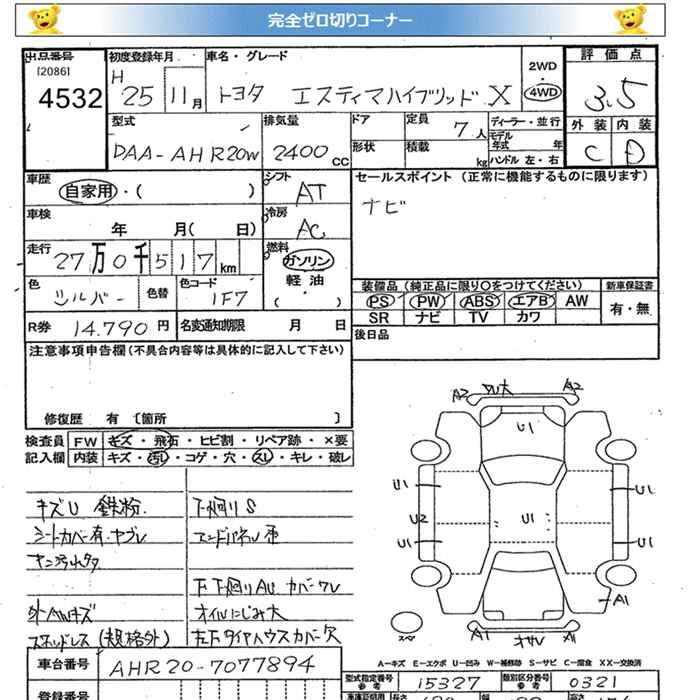 完全ゼロ切りコーナー
出品番号 初度登録年月 車名・グレード 評価点
[2086] 4532 H 25 11月 トヨタ エスティマハイブリッド X 2WD・4WD 3.5
型式 排気量 ドア 定員 ディーラー・並行 外装 内装
DAA-AHR20W 2400cc 形状 7人 積載 kg モデル年式 年 ハンドル 左・右 C D
車歴 自家用・( ) シフト AT セールスポイント(正常に機能するものに限ります)
車検 年 月( 日) 冷房 AC ナビ
走行 27万0千517km 燃料 ガソリン 軽油 ・( )
色 シルバー 色替 色コード 1F7
装備品(純正品に限り○をつけてください) 新車保証書
PS PW ABS エアB AW 有・無
SR ナビ TV カワ
R券 14.790円 名変通知期限 月 日 後日品
注意事項申告欄(不具合内容等は具体的に記入して下さい)
修復歴 有 〔箇所 〕
検査員 FW キズ・飛石・ヒビ割・リペア跡・×要
記入欄 内装 キズ・汚レ・コゲ・穴・スレ・キレ・破レ
キズU 鉄粉. 下廻りS
シートカバー有.ヤブレ エンドパネル歪
下下廻りAU カバーワレ
外AWキズ オイルにじみ大
スタッドレス(規格外) 左下タイヤハウスカバー欠
A2 A2
U1
U1 U1
U2 U1
U1 U1
A1
スペア A1 オサレ A1
A-キズ E-エクボ U-凹み W-補修跡 S-サビ C-腐食 XX-交換済
車台番号 AHR20-7077894 型式指定番号 参考 15327 類別区分番号 参考 0321
登録番号